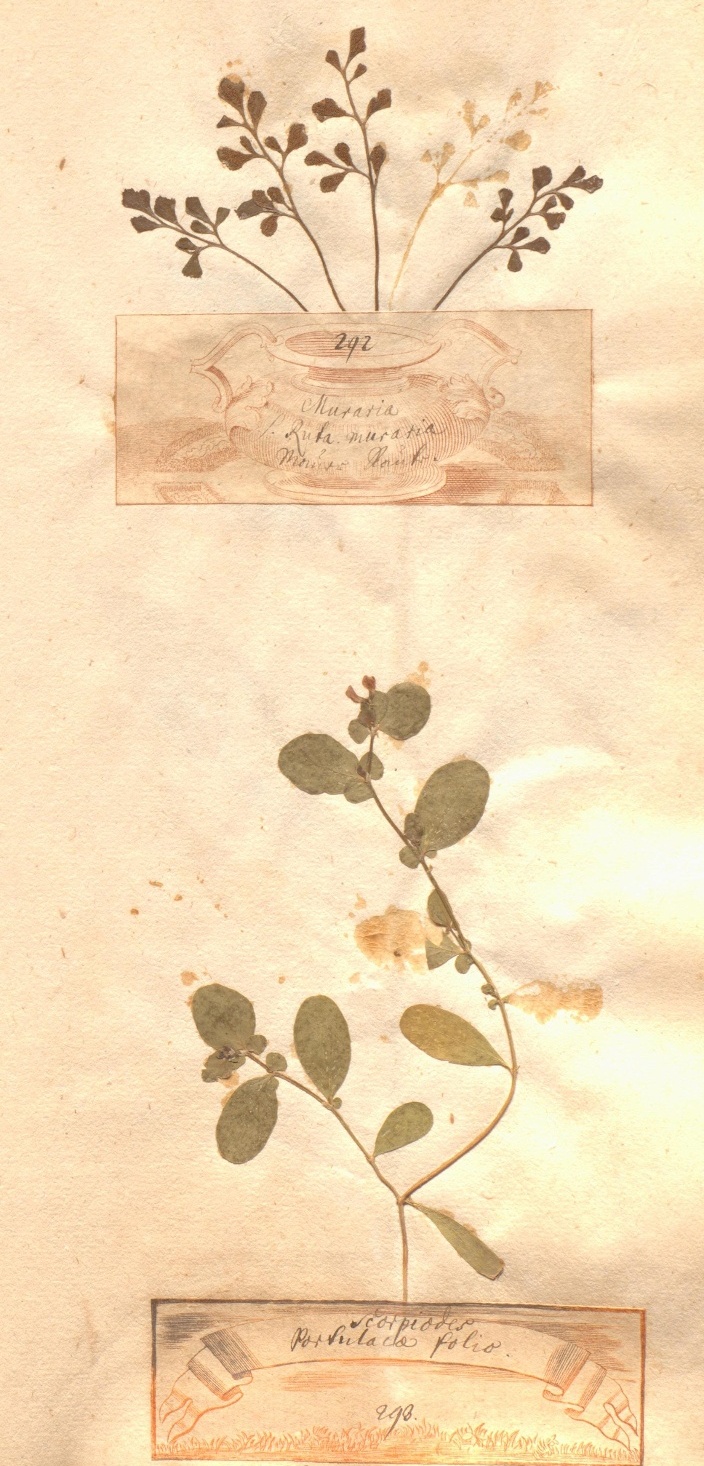 292
Muraria
s. Ruta. muraria
Mauer Raute.
Scorpiodes
Portulacae folio.
293.